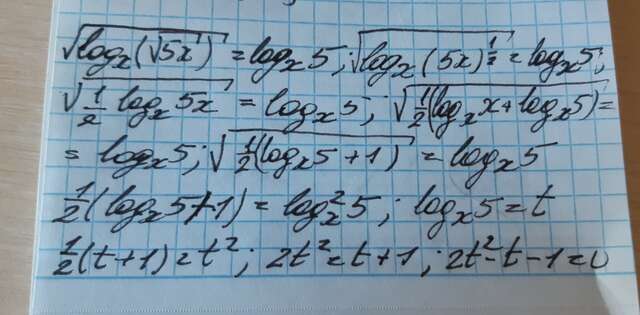 √(log_x(√5x)) = log_x 5; √(log_x(5x)^(1/2)) = log_x 5;
√(1/2 log_x 5x) = log_x 5; √(1/2(log_x x + log_x 5)) =
= log_x 5; √(1/2(log_x 5 + 1)) = log_x 5
1/2(log_x 5 + 1) = log_x^2 5; log_x 5 = t
1/2(t + 1) = t^2; 2t^2 = t + 1; 2t^2 - t - 1 = 0